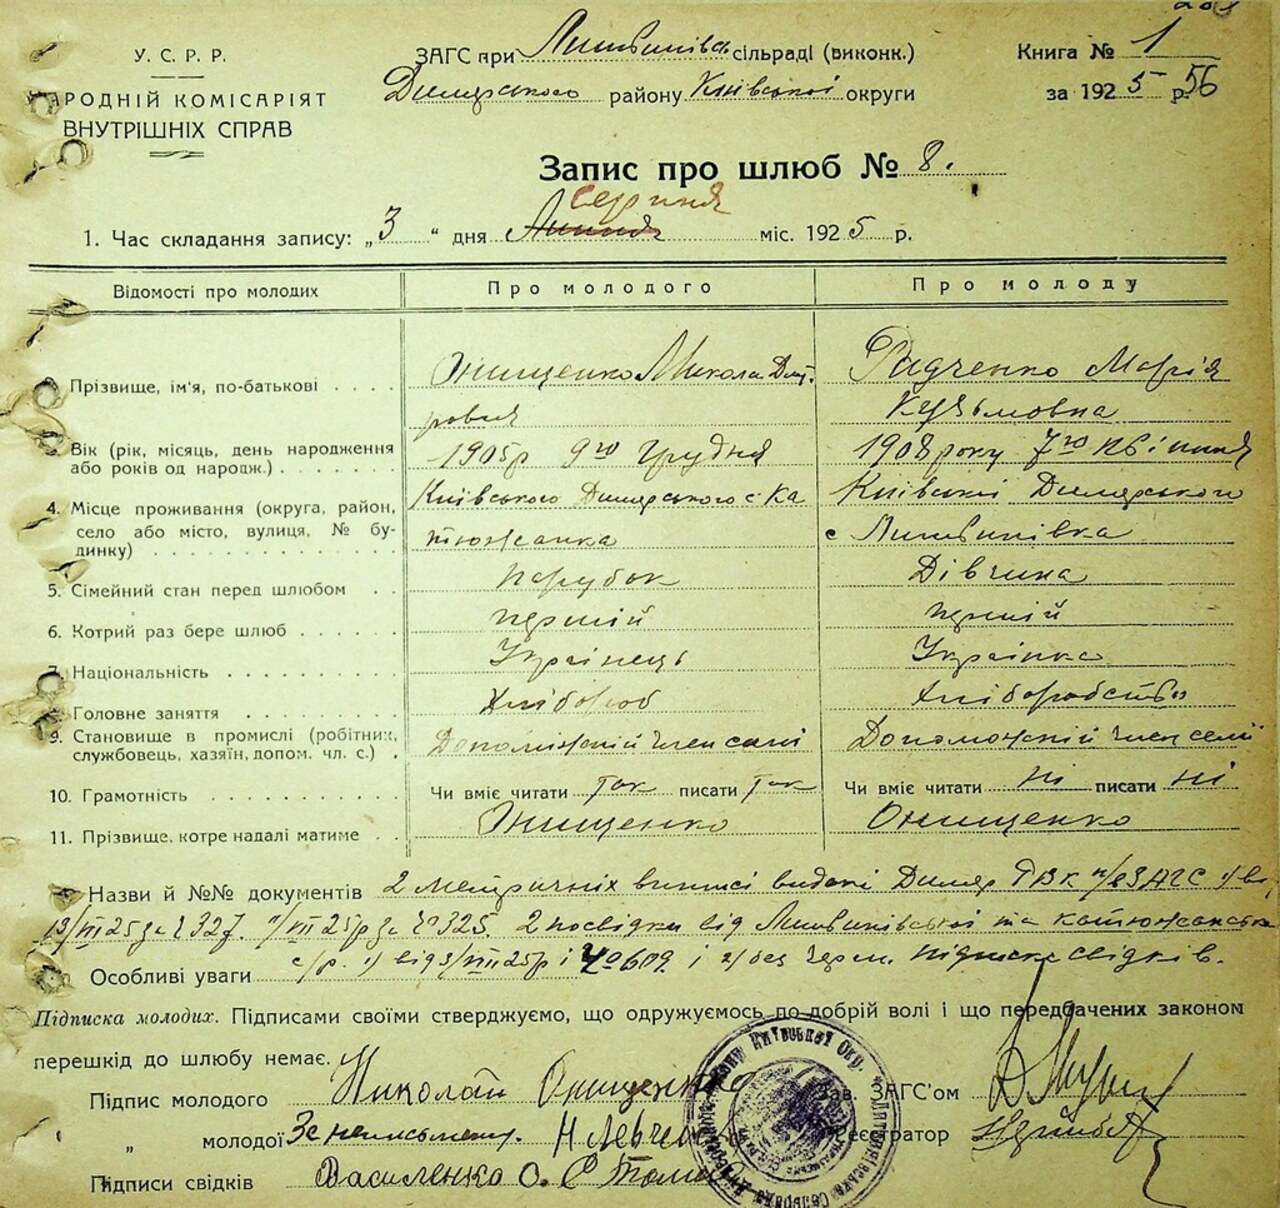 У. С. Р. Р.
НАРОДНІЙ КОМІСАРІЯТ
ВНУТРІШНІХ СПРАВ
ЗАГС при Литвинівс сільраді (виконк.)
Димерського району Київської округи
Книга № 1
за 1925 р. 56
Запис про шлюб № 8.
Серпня
1. Час складання запису: „3“ дня Липня міс. 1925 р.
Відомості про молодих Про молодого Про молоду
Прізвище, ім'я, по-батькові . . . . Онищенко Микола Дмит- Радченко Марія
рович Кузьмовна
Вік (рік, місяць, день народження 1905р 9го Грудня 1908 року 7го Квітня
або років од народж.) . . . . . . .
4. Місце проживання (округа, район, Київського Димерського с. Ка Київської Димерського
село або місто, вулиця, № бу- тюжанка с Литвинівка
динку) . . . . . . . . . . . . . .
5. Сімейний стан перед шлюбом . . парубок Дівчина
6. Котрий раз бере шлюб . . . . . . перший перший
7. Національність . . . . . . . . . Українець Українка
8. Головне заняття . . . . . . . . хлібороб хліборобство
9. Становище в промислі (робітник, Допоміжний член семї Допоможній член семї
службовець, хазяїн, допом. чл. с.) .
10. Грамотність . . . . . . . . . . Чи вміє читати так писати так Чи вміє читати ні писати ні
11. Прізвище, котре надалі матиме . . Онищенко Онищенко
Назви й №№ документів 2 метричніх виписі видані Димер РВК п/в ЗАГС
13/VII 25 за № 327. /VII 25р за № 325. 2 посвідки від Литвинівської та катюжанської
Особливі уваги с/р. 1) від 3/VIII 25р і № 609 і 2) без черг. підписка свідків.
Підписка молодих. Підписами своїми стверджуємо, що одружуємось по добрій волі і що передбачених законом
перешкід до шлюбу немає.
Підпис молодого Николай Онищенко Зав. ЗАГС'ом
„ молодої За неписьмену. Н Левченко Реєстратор
Підписи свідків Василенко О.